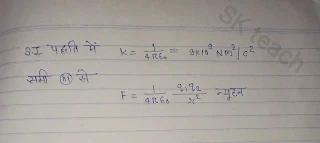 SI पद्धति में K = 1/4πε₀ = 9×10⁹ Nm²/c²
समी ③ से
F = 1/4πε₀ q₁q₂/r² न्यूटन
SK teach